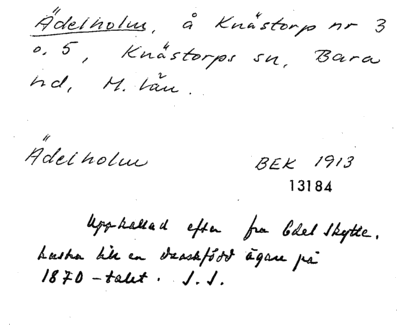 Ädelholm, å Knästorp nr 3
o. 5, Knästorps sn, Bara
hd, M. län.
Ädelholm BEK 1913
13184
Uppkallad efter fru Edel Skytte,
hustru till en danskfödd ägare på
1870-talet. S.S.